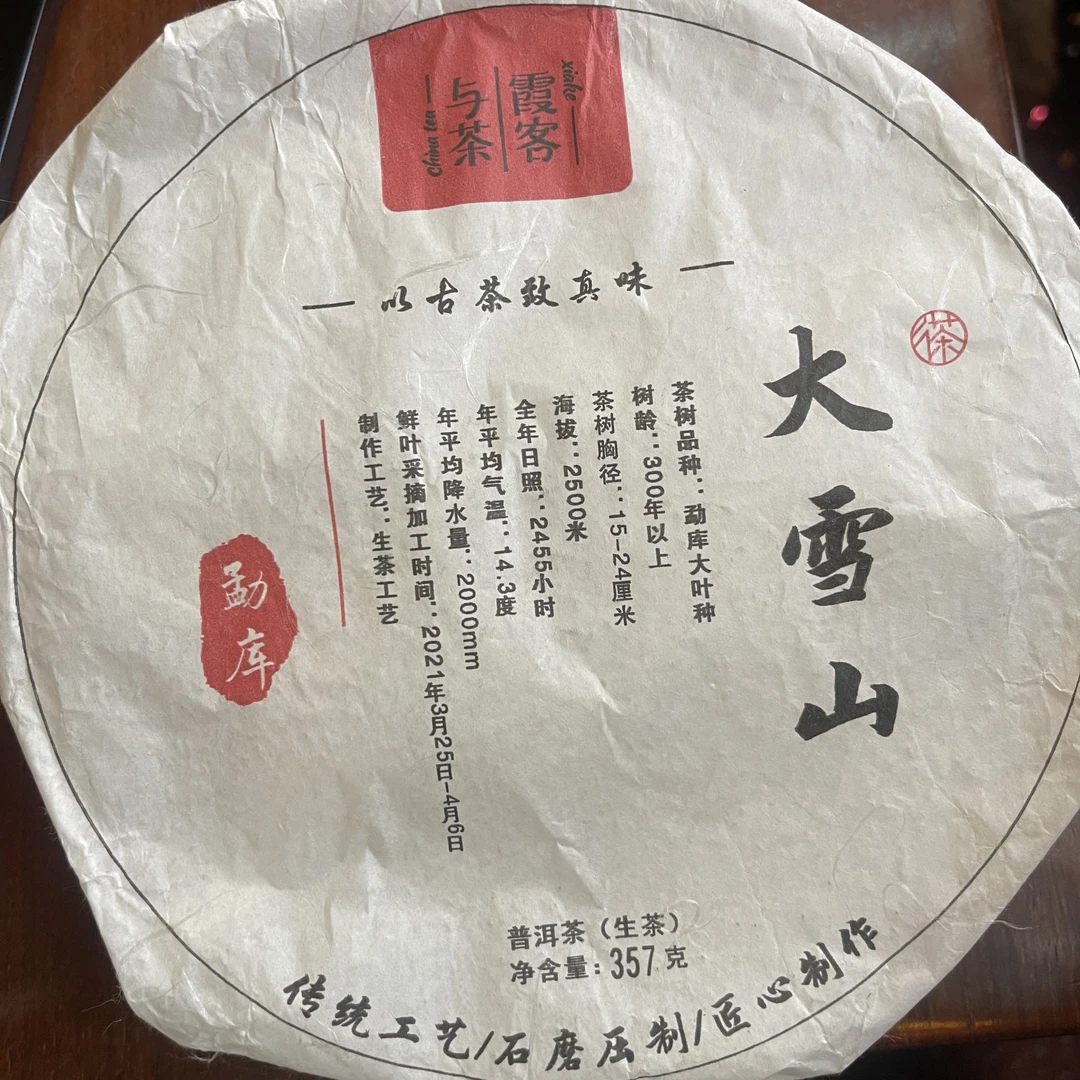 xiake
霞客
与茶
China tea
以古茶致真味
茶
大雪山
茶树品种：勐库大叶种
树龄：300年以上
茶树胸径：15-24厘米
海拔：2500米
全年日照：2455小时
年平均气温：14.3度
年平均降水量：2000mm
鲜叶采摘加工时间：2021年3月25日-4月6日
制作工艺：生茶工艺
勐库
普洱茶（生茶）
净含量：357克
传统工艺/石磨压制/匠心制作